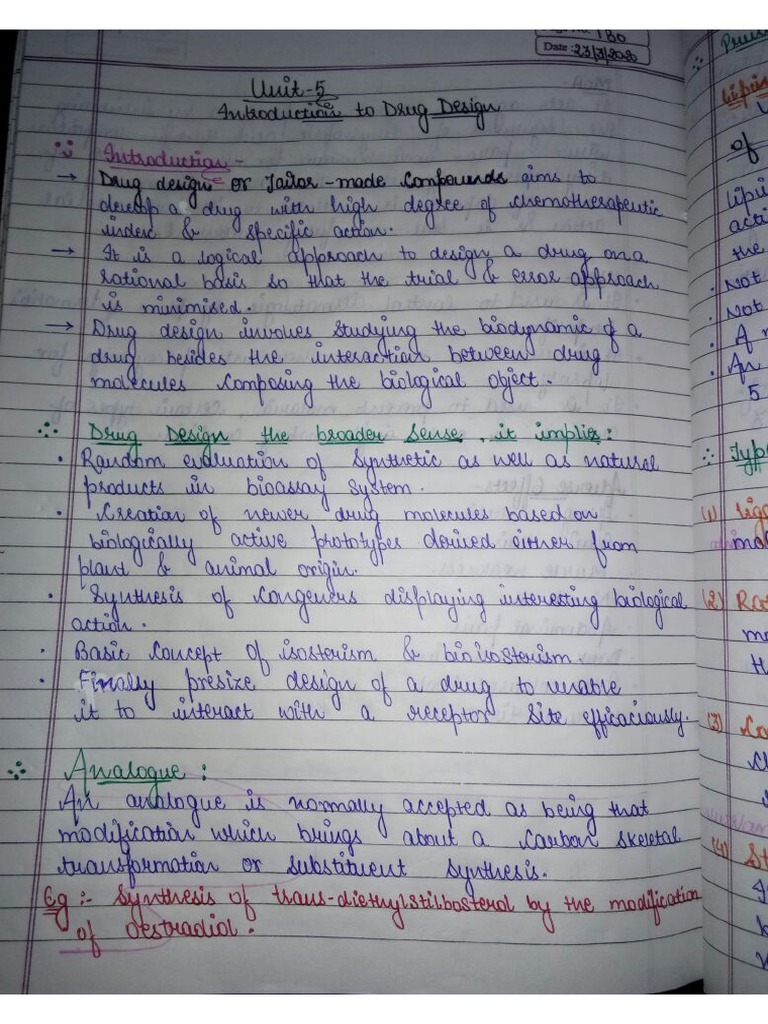 180
Date: 23/3/2020
Unit-5
Introduction to Drug Design
Introduction -
→ Drug design or Tailor-made compounds aims to
develop a drug with high degree of chemotherapeutic
index & specific action.
→ It is a logical approach to design a drug on a
rational basis so that the trial & error approach
is minimised.
→ Drug design involves studying the biodynamic of a
drug besides the interaction between drug
molecules composing the biological object.
Drug Design the broader sense, it implies:
• Random evaluation of synthetic as well as natural
products in bioassay system.
• Creation of newer drug molecules based on
biologically active prototypes derived either from
plant & animal origin.
• Synthesis of congeners displaying interesting biological
action.
• Basic concept of isosterism & bioisosterism.
• Finally presize design of a drug to enable
it to interact with a receptor site efficaciously.
Analogue :
An analogue is normally accepted as being that
modification which brings about a carbon skeletal
transformation or substituent synthesis.
Eg :- Synthesis of trans-diethylstilbosterol by the modification
of oestradiol.
of
the
• Not
• Not
• A
• An
5
(1)
(2)
(3)
(4)